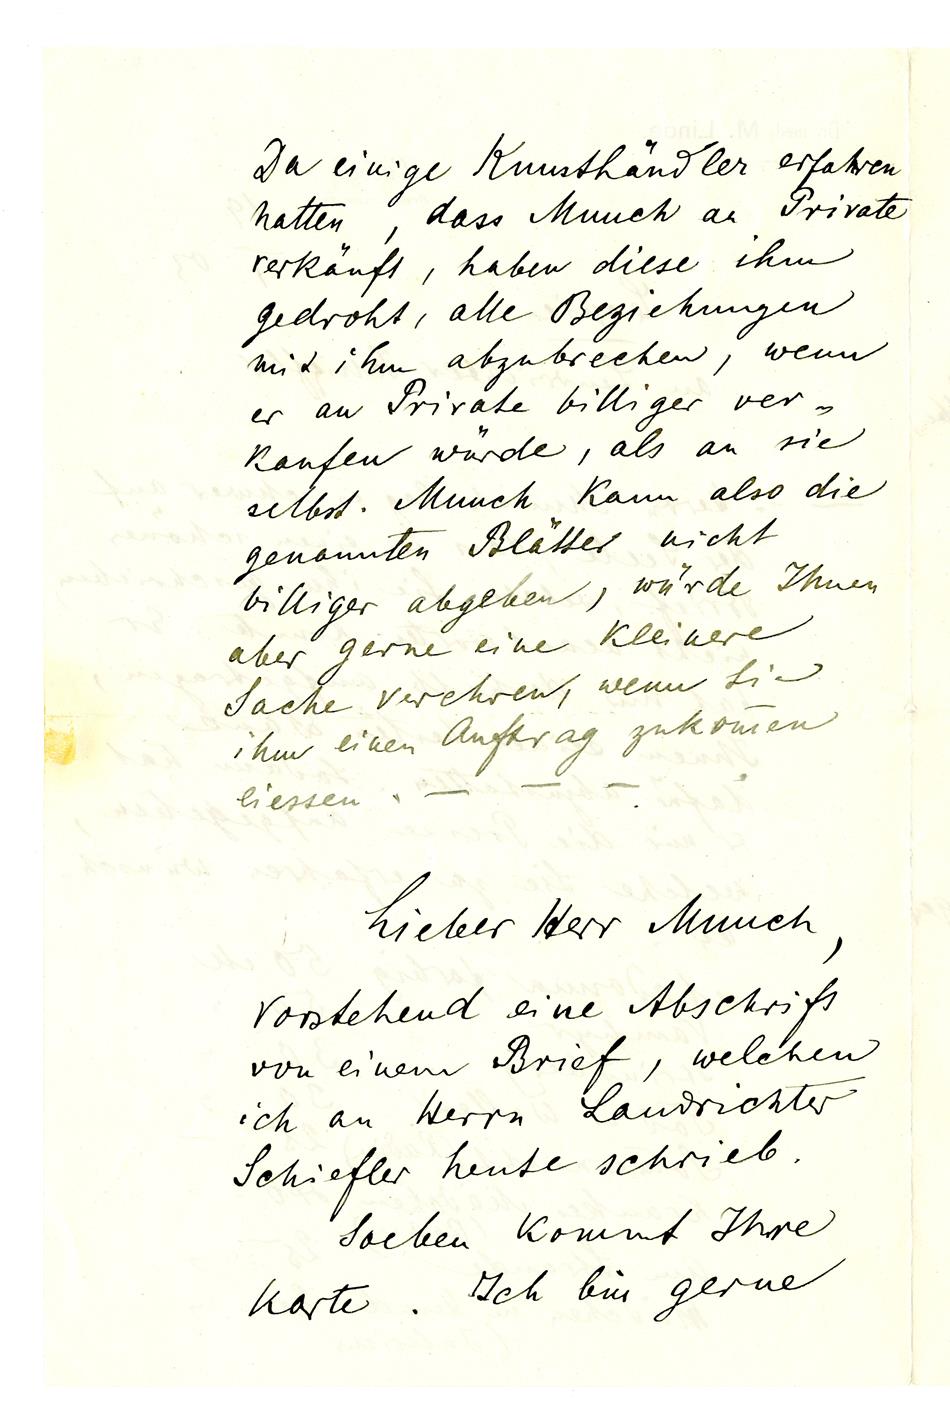 Da einige Kunsthändler erfahren
hatten, dass Munch an Private
verkäuft, haben diese ihm
gedroht, alle Beziehungen
mit ihm abzubrechen, wenn
er an Private billiger ver-
kaufen würde, als an sie
selbst. Munch kann also die
genannten Blätter nicht
billiger abgeben, würde Ihnen
aber gerne eine kleinere
Sache verehren, wenn Sie
ihm einen Auftrag zukom̅en
liessen. — — —.
Lieber Herr Munch,
vorstehend eine Abschrift
von einem Brief, welchen
ich an Herrn Landrichter
Schiefler heute schrieb.
Soeben kommt Ihre
Karte. Ich bin gerne